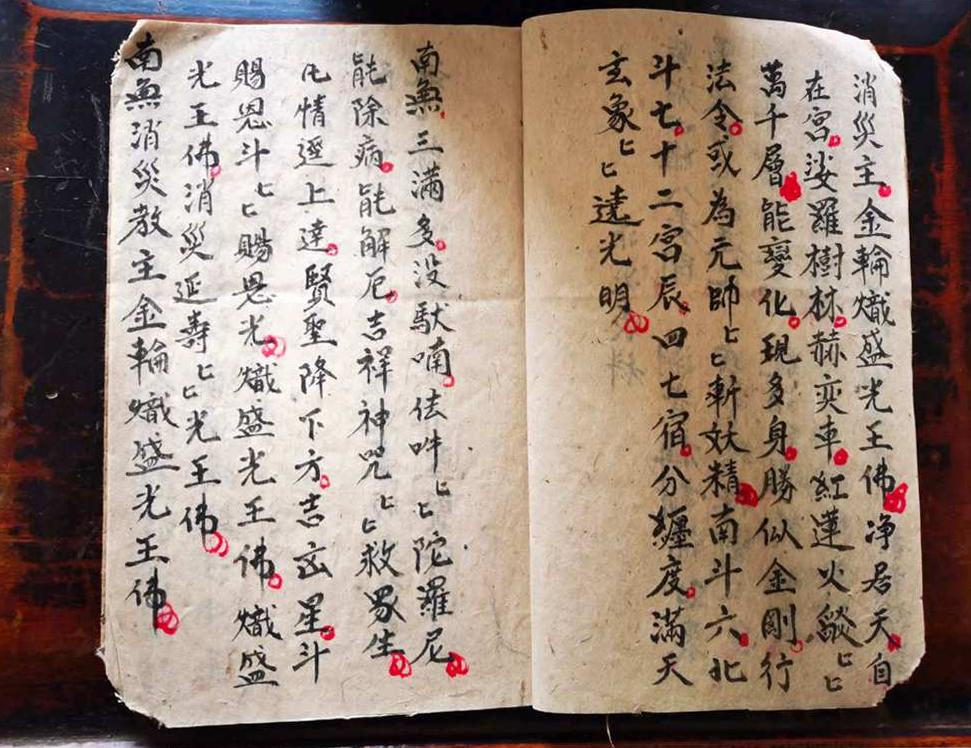 消災主金輪熾盛光王佛净居天自
在宮娑羅樹林赫奕車紅蓮火燄匕匕
萬千層能變化現多身勝似金剛行
法令或為元帥匕匕斬妖精南斗六北
斗七十二宮辰四七宿分纏度滿天
玄象匕匕遶光明
南無三滿多没馱喃佉吽匕匕陀羅尼
能除病能解厄吉祥神咒匕匕救眾生
凡情逕上達賢聖降下方吉凶星斗
賜恩斗匕匕賜恩光熾盛光王佛熾盛
光王佛消災延壽匕匕光王佛
南無消災教主金輪熾盛光王佛